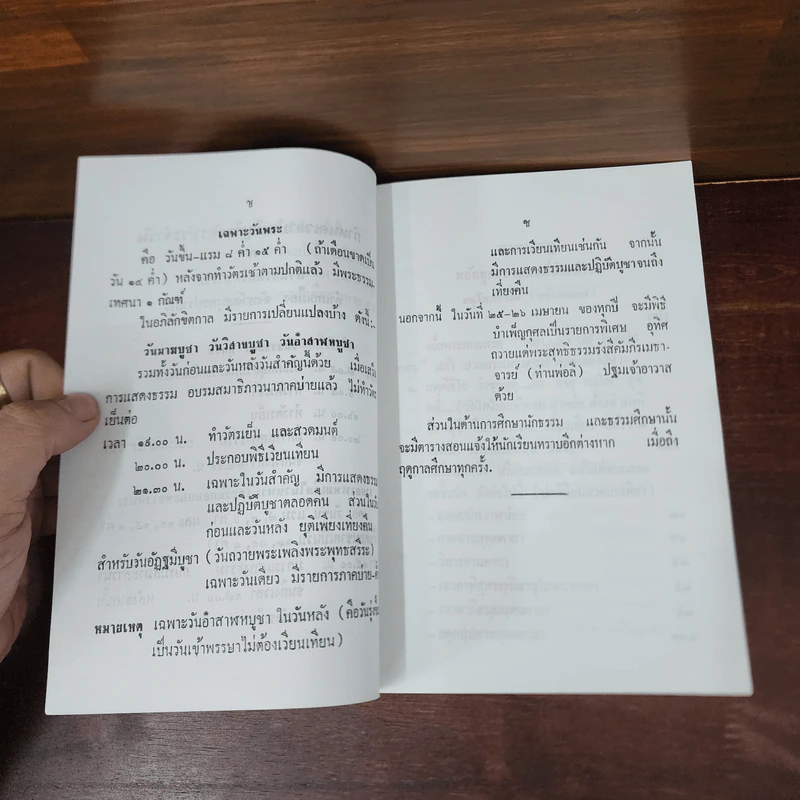 ช
เฉพาะวันพระ
คือ วันขึ้น-แรม ๘ ค่ำ ๑๕ ค่ำ (ถ้าเดือนขาดเป็น
วัน ๑๔ ค่ำ) หลังจากทำวัตรเช้าตามปกติแล้ว มีพระธรรม-
เทศนา ๑ กัณฑ์
ในอภิลักขิตกาล มีรายการเปลี่ยนแปลงบ้าง ดังนี้:-
วันมาฆบูชา วันวิสาขบูชา วันอาสาฬหบูชา
รวมทั้งวันก่อนและวันหลังวันสำคัญนี้ด้วย เมื่อเสร็จ
การแสดงธรรม อบรมสมาธิภาวนาภาคบ่ายแล้ว ไม่ทำวัตร
เย็นต่อ
เวลา ๑๙.๐๐ น. ทำวัตรเย็น และสวดมนต์
๒๐.๐๐ น. ประกอบพิธีเวียนเทียน
๒๑.๓๐ น. เฉพาะในวันสำคัญ มีการแสดงธรรม
และปฏิบัติบูชาตลอดคืน ส่วนใน
ก่อนและวันหลัง ยุติเพียงเที่ยงคืน
สำหรับวันอัฏฐมีบูชา (วันถวายพระเพลิงพระพุทธสรีระ)
เฉพาะวันเดียว มีรายการภาคบ่าย-
หมายเหตุ เฉพาะวันอาสาฬหบูชา ในวันหลัง (คือวันรุ่งขึ้น
เป็นวันเข้าพรรษาไม่ต้องเวียนเทียน)
ซ
และการเวียนเทียนเช่นกัน จากนั้น
มีการแสดงธรรมและปฏิบัติบูชาจนถึง
เที่ยงคืน
นอกจากนี้ ในวันที่ ๒๕-๒๖ เมษายน ของทุกปี จะมีพิธี
บำเพ็ญกุศลเป็นรายการพิเศษ อุทิศ
ถวายแด่พระสุทธิธรรมรังสีคัมภีรเมธา-
จารย์ (ท่านพ่อลี) ปฐมเจ้าอาวาส
ด้วย
ส่วนในด้านการศึกษานักธรรม และธรรมศึกษานั้น
จะมีตารางสอนแจ้งให้นักเรียนทราบอีกต่างหาก เมื่อถึง
ฤดูกาลศึกษาทุกครั้ง.